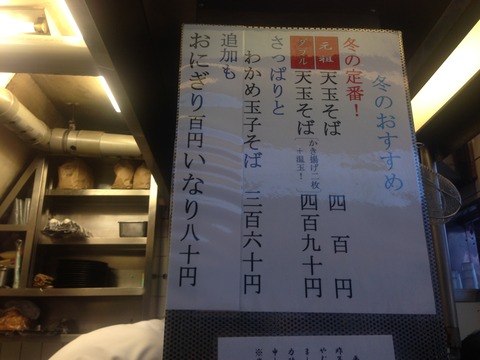 冬のおすすめ
冬の定番！
元祖 天玉そば 四百円
ダブル 天玉そば かき揚げ二枚＋温玉！ 四百九十円
さっぱりと
わかめ玉子そば 三百六十円
追加も
おにぎり百円いなり八十円